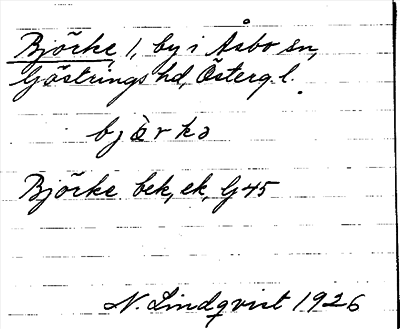 Björke 1, by i Åsbo sn,
Göstrings hd, Östergl.
bjòrkə
Björke bek, ek, G45
N. Lindqvist 1926